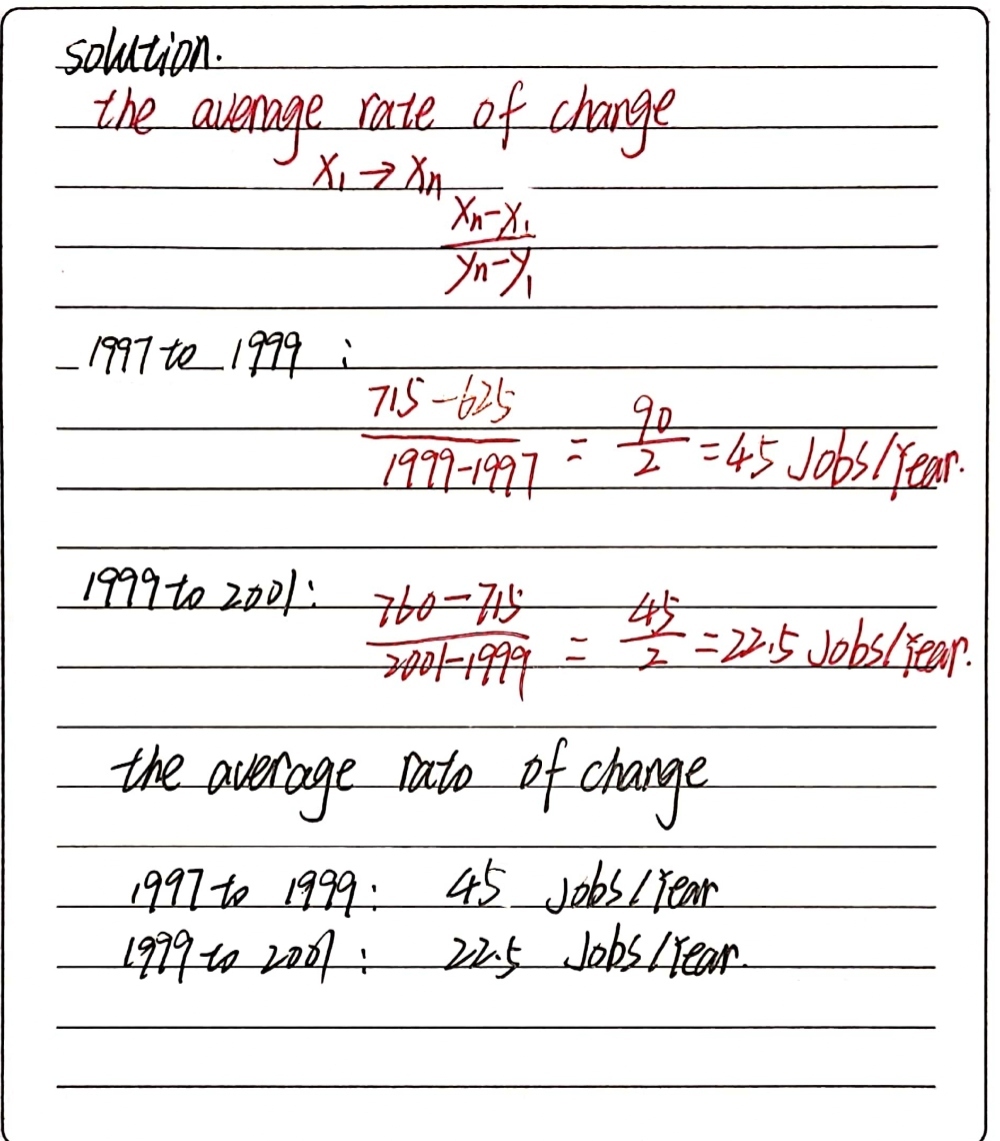 solution.
the average rate of change
X₁ → Xn
(Xn-X₁)/(Yn-Y₁)
1997 to 1999 :
(715-625)/(1999-1997) = 90/2 = 45 Jobs/Year.
1999 to 2001: (760-715)/(2001-1999) = 45/2 = 22.5 Jobs/Year.
the average rato of change
1997 to 1999: 45 Jobs/Year
1999 to 2001 : 22.5 Jobs/Year.